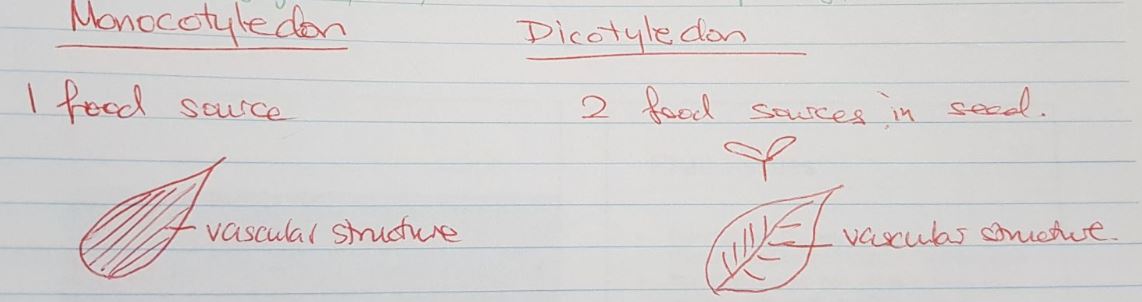 Monocotyledon
Dicotyledon
1 food source
2 food sources in seed.
vascular structure
vascular structure.